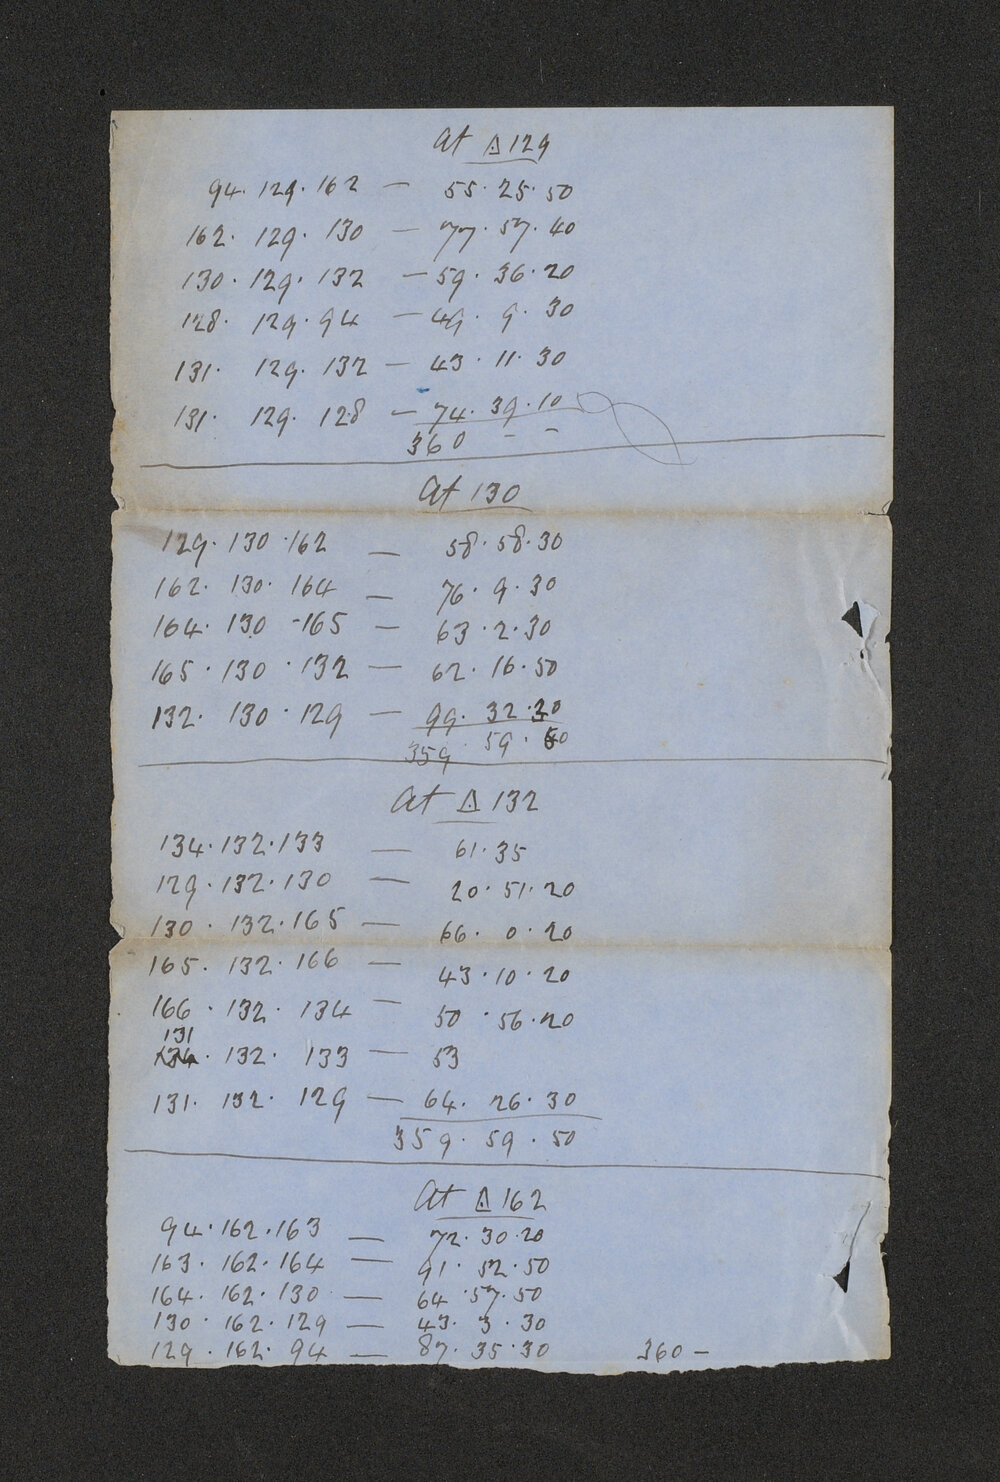 at △ 129
94 . 129 . 162 — 55 . 25 . 50
162 . 129 . 130 — 77 . 57 . 40
130 . 129 . 132 — 59 . 36 . 20
128 . 129 . 94 — 49 . 9 . 30
131 . 129 . 132 — 43 . 11 . 30
131 . 129 . 128 — 74 . 39 . 10
360 – –
at 130
129 . 130 . 162 — 58 . 58 . 30
162 . 130 . 164 — 76 . 9 . 30
164 . 130 - 165 — 63 . 2 . 30
165 . 130 . 132 — 62 . 16 . 50
132 . 130 . 129 — 99 . 32 . 30
359 . 59 . 50
at △ 132
134 . 132 . 133 — 61 . 35
129 . 132 . 130 — 20 . 51 . 20
130 . 132 . 165 — 66 . 0 . 20
165 . 132 . 166 — 43 . 10 . 20
166 . 132 . 134 — 50 . 56 . 20
131
134 . 132 . 133 — 53
131 . 132 . 129 — 64 . 26 . 30
359 . 59 . 50
at △ 162
94 . 162 . 163 — 72 . 30 . 20
163 . 162 . 164 — 91 . 52 . 50
164 . 162 . 130 — 64 . 57 . 50
130 . 162 . 129 — 43 . 3 . 30
129 . 162 . 94 — 87 . 35 . 30 360 –